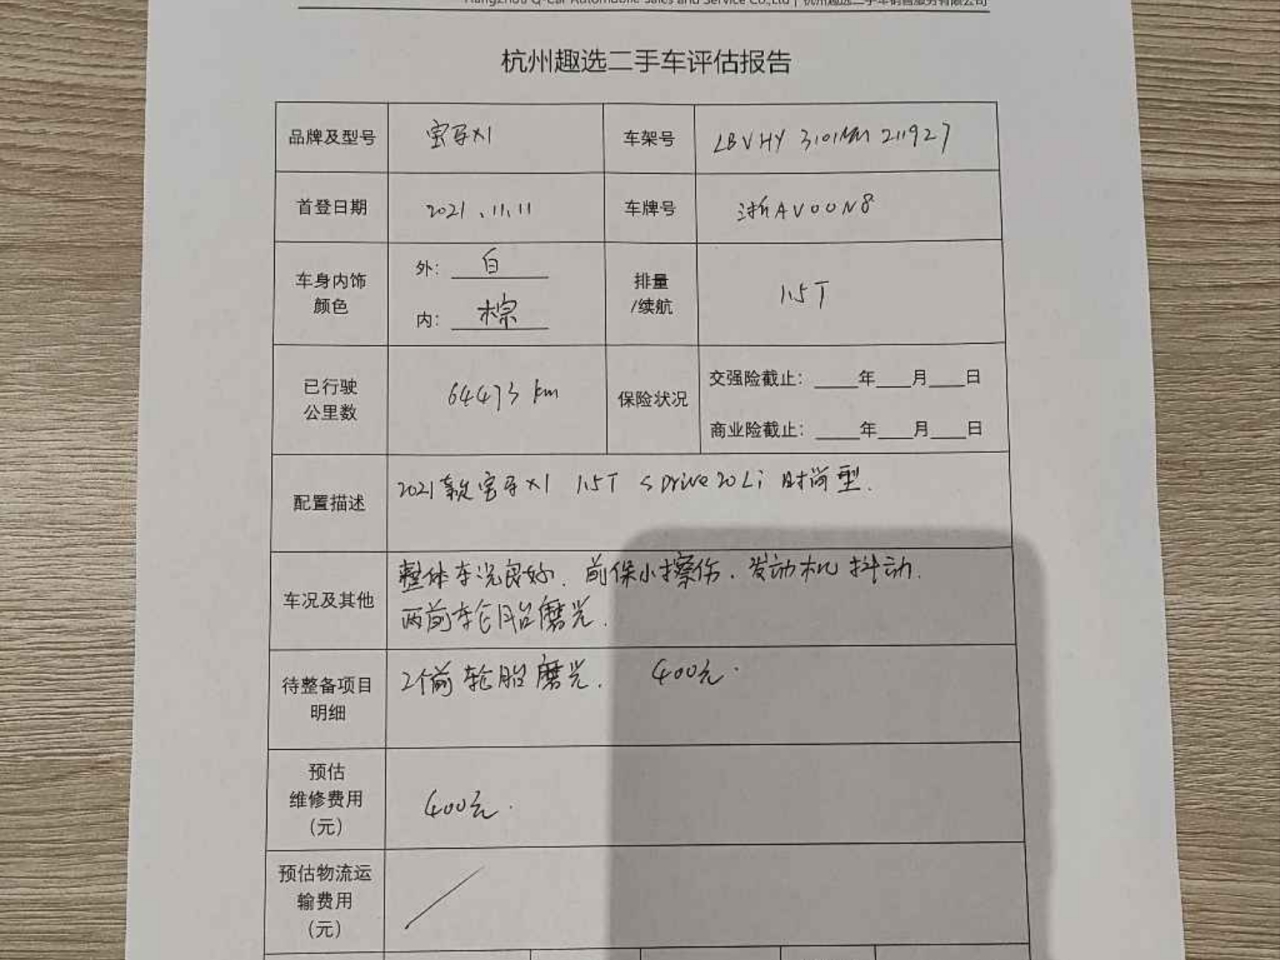 Hangzhou Q-Car Automobile Sales and Service Co.,Ltd | 杭州趣选二手车销售服务有限公司
杭州趣选二手车评估报告
品牌及型号 宝马X1 车架号
首登日期 2021.11.11 车牌号 浙AV00N8
车身内饰颜色 外: 白 内: 棕 排量/续航 1.5T
已行驶公里数 64473 km 保险状况 交强险截止: ____年___月___日
商业险截止: ____年___月___日
配置描述 2021款宝马X1 1.5T sDrive20Li 时尚型.
车况及其他 整体车况良好. 前保小擦伤. 发动机抖动.
两前轮胎磨光.
待整备项目明细 2个前轮胎磨光. 400元.
预估维修费用(元) 400元.
预估物流运输费用(元)